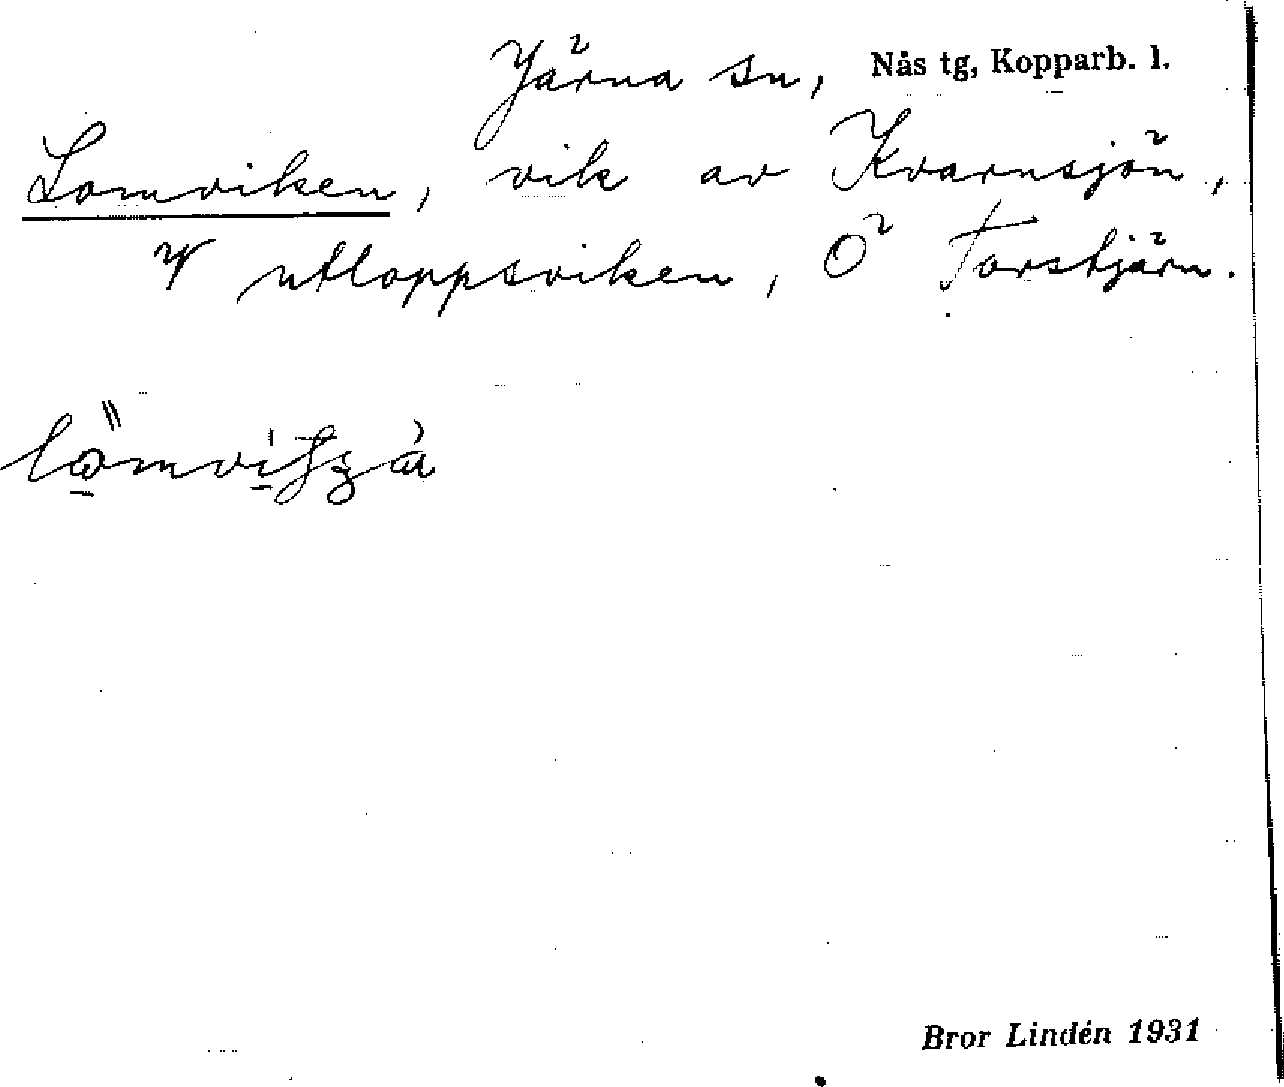 Järna sn, Nås tg, Kopparb. l.
Lomviken, vik av Kvarnsjön,
utloppsviken, Ö Torstjärn.
Bror Lindén 1931